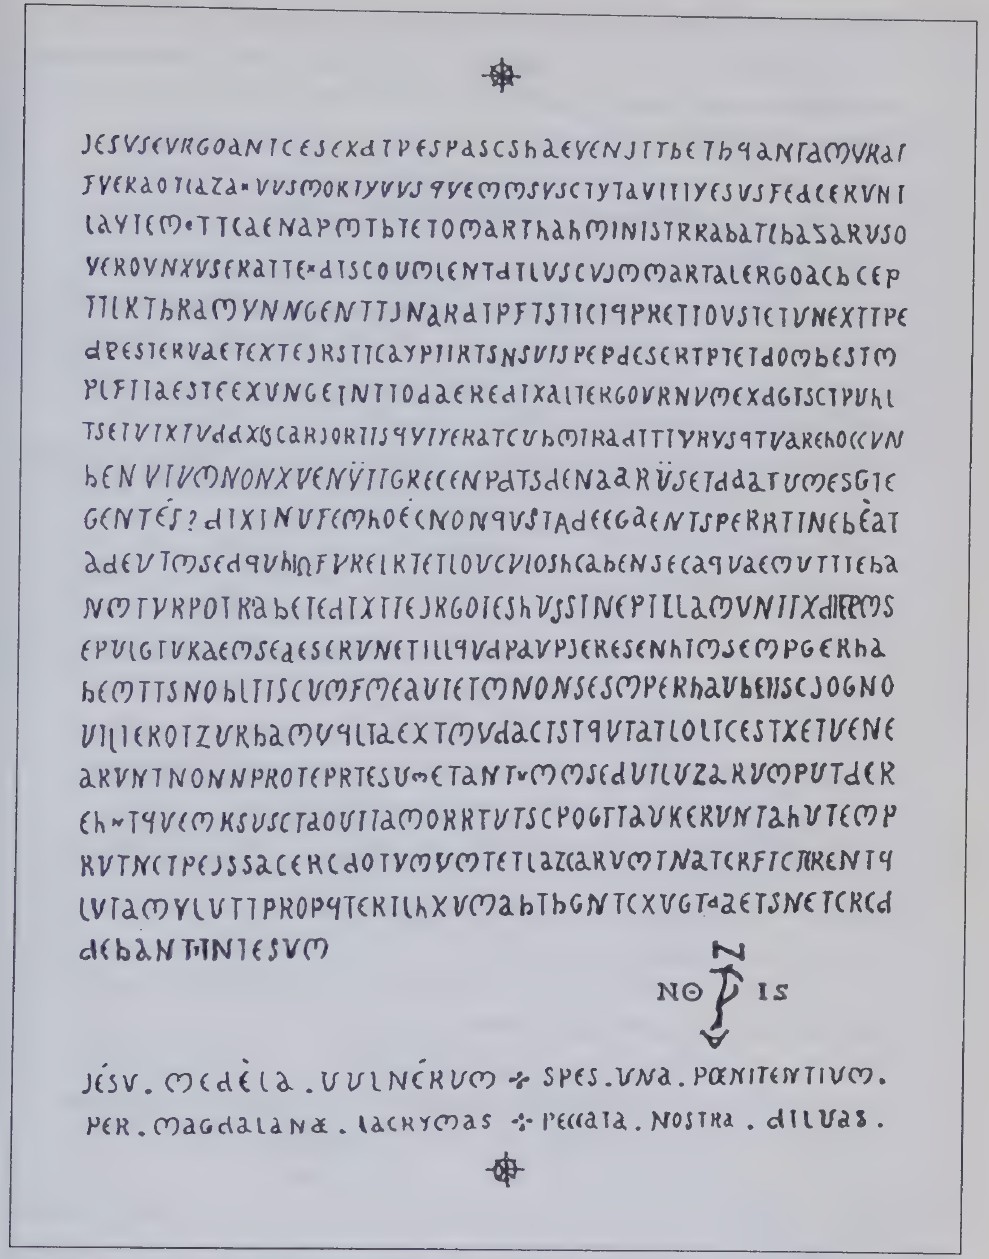 JESVSEVRGOANTCESEXdTPESPASCShAEVENJTTbETh9ANTAMVRAT
FVERAOTIAZA*VVSMORTYVVS9VEMMSVSCTYTAVITIYESVSFEdCERVNT
LAVTEM*TTCAENAPMTbTETOMARThAhMINISTRRAbATCbAZARVSO
VEROVNXVSERATTE*dTSCOUMLENTdTLVSEVJMMARTALERGOACbCEP
TTLKTbRAMYNNGENTTJNARdTPFTSTTCT9PRETTOVSTETVNEXTTPE
dPESTERVAETEXTEJRSTTCAYPTIRTSNSVISPEPdESERTPTETdOMbESTM
PLFTTAESTEEXVNGETNTTOdAEREdIXALTERGOVRNVMEXdGTSCTPVhL
TSETVIXTVddXGCARJORTIS9VIYERATCUbMTRAdTTTVRVS9TVAREhOCCVN
bENVIVMNONXVENŸTTGRECENPdTSdENAARÜSETddATVMESGTE
GENTÉS?dIXINUFEMhOÉCNON9VSTAdEEGAENTSPERRTINEbÈAT
AdEVTMSEd9VhLQFVRELRTETLOVCVLOShCAbENSECA9VAEMVTTTEbA
NMTVRPOTRAbETEdTXTTEJRGOIEShVSSTNEPTLLAMVNITXdIEPMS
EPVLGTVRAEMSEdESERVNETILL9VdPAVPJERESENhTMSEMPGERhA
bEMTTSNObLTTSCVMFMEAVTETMNONSESMPERhAVbENSCJOGNO
VILIEROTZVRbAMV9LTAEXTMVdACTST9VTATLOLTCESTXETVENE
ARVNTNONNPROTEPRTESU^METANT*MMSEdVTLVZARVMPVTdER
Eh*T9VEMRSVSCTAOVITAMORRTVTSCPOGTTAVKERVNTAhVTEMP
RVTNCTPEJSSACERCdOTVMVMTETLAZCARVMTNATCRFTCTRENT9
LVTAMYLVTTPROP9TERTLhXVMAbTbGNTCXVGTdAETSNETCRCd
dEbANTTINTESVM
N
NO P IS
V
JÉSV . MEDÈLA . VVLNÉRVM ⁜ SPES . VNA . PŒNITENTIVM .
PER . MAGDALANÆ . LACRYMAS ⁜ PECCATA . NOSTRA . DILVAS .